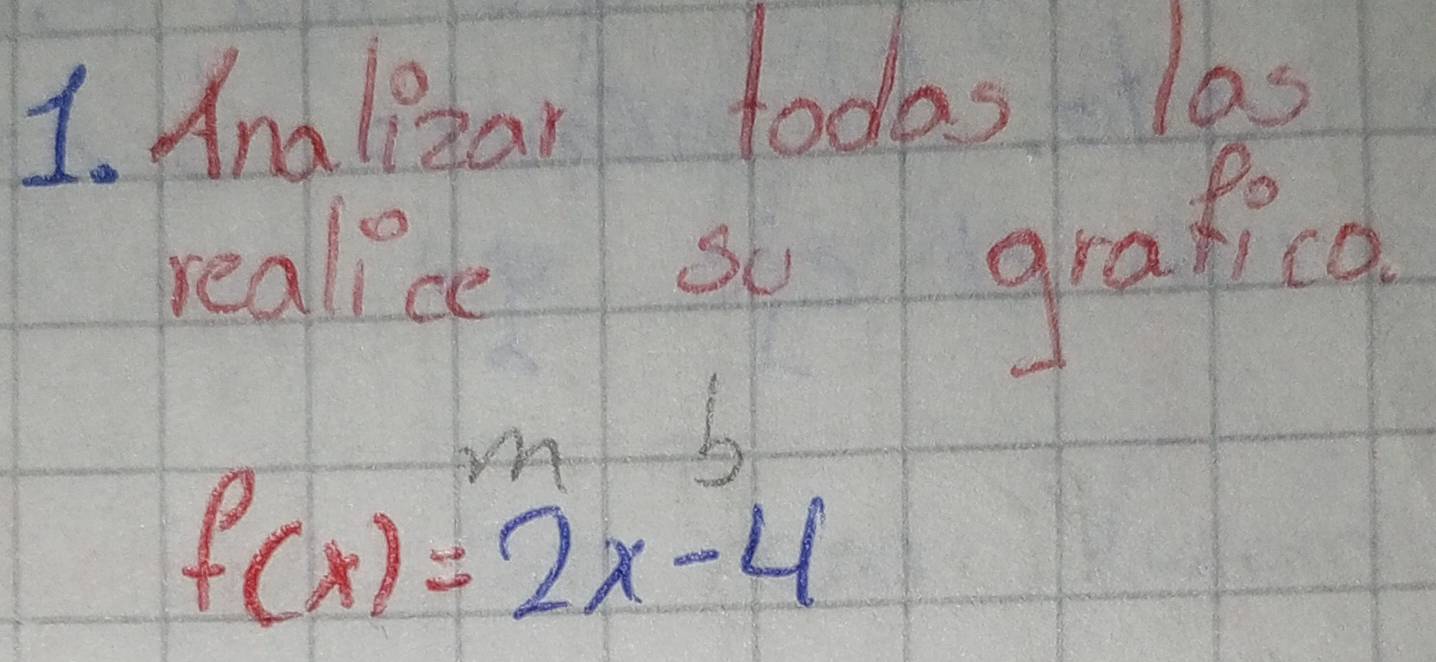 1. Analizar todas las
realice su grafica.
m b
f(x) = 2x - 4